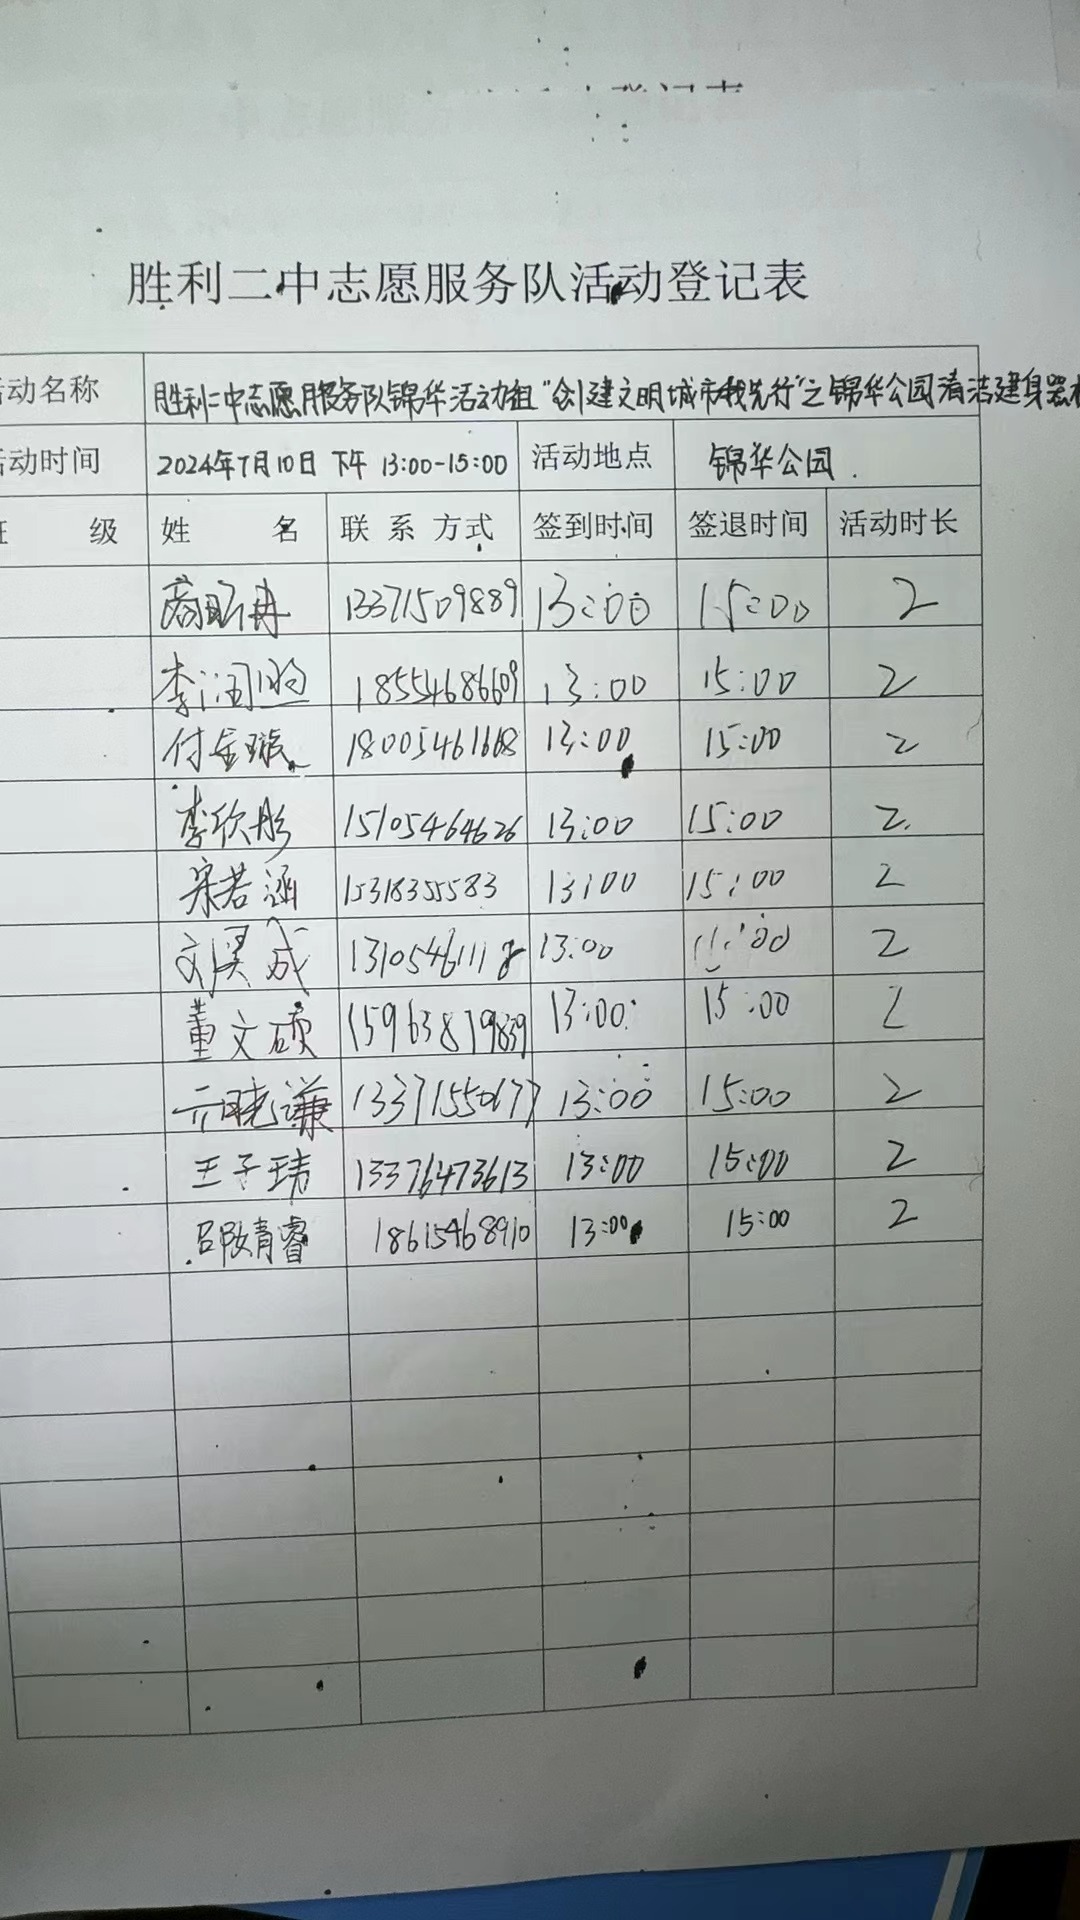 胜利二中志愿服务队活动登记表
活动名称 胜利二中志愿服务队锦华活动组“创建文明城市我先行”之锦华公园清洁健身器材
活动时间 2024年7月10日 下午 13:00-15:00 活动地点 锦华公园.
班 级 姓 名 联 系 方式 签到时间 签退时间 活动时长
13371509889 13:00 15:00 2
李润 18554686609 13:00 15:00 2
付金璇 18005461668 13:00 15:00 2
李欣彤 15105464626 13:00 15:00 2
宋若涵 15318355583 13:00 15:00 2
成 13105461118 13:00 2
董文硕 15963879839 13:00 15:00 2
亓晓谦 13371550677 13:00 15:00 2
王子玮 13376473613 13:00 15:00 2
邵靖睿 18615468910 13:00 15:00 2